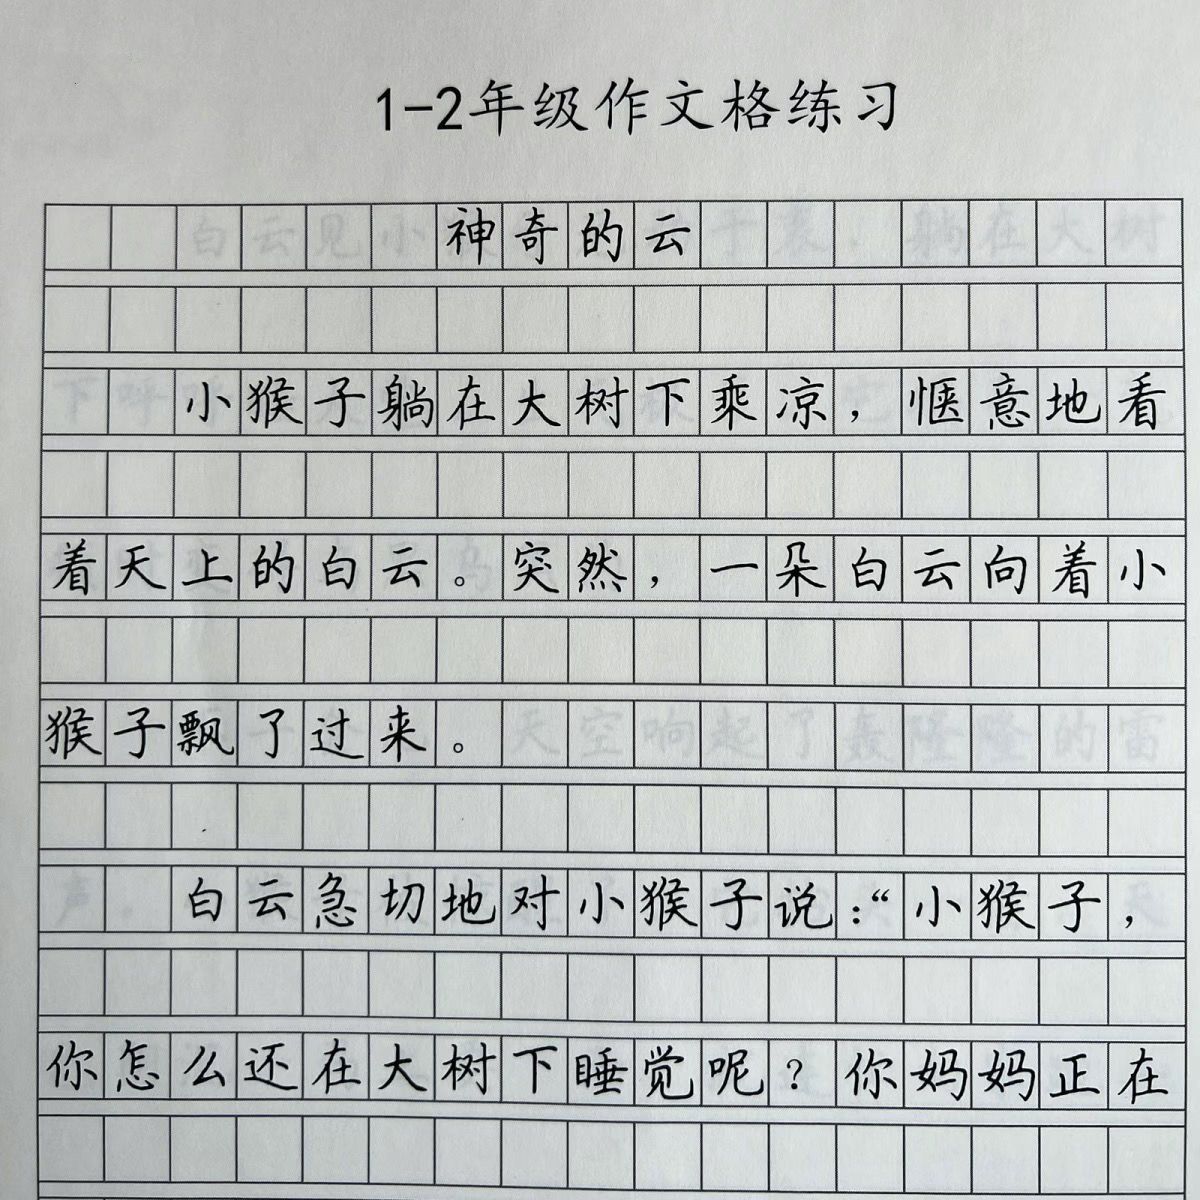 1-2年级作文格练习
神奇的云
小猴子躺在大树下乘凉，惬意地看
着天上的白云。突然，一朵白云向着小
猴子飘了过来。
白云急切地对小猴子说：“小猴子，
你怎么还在大树下睡觉呢？你妈妈正在